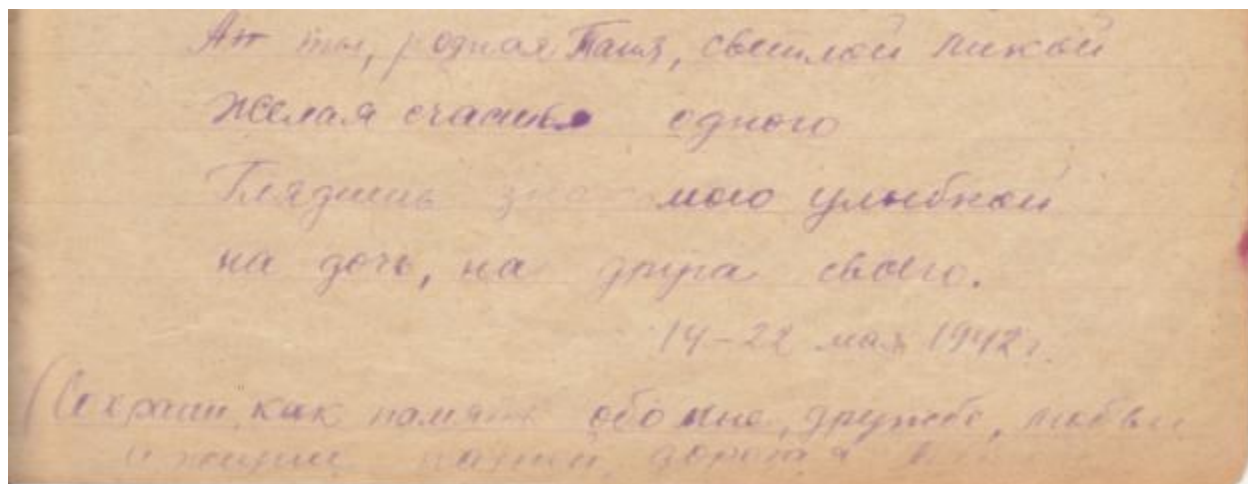 ты, родная Таня, светлой
Желая счастья одного
Глядишь знакомою улыбкой
на дочь, на друга своего.
14-22 мая 1942 г.
(Сохрани, как память обо мне, дружбе, любви
и жизни нашей, дорогая